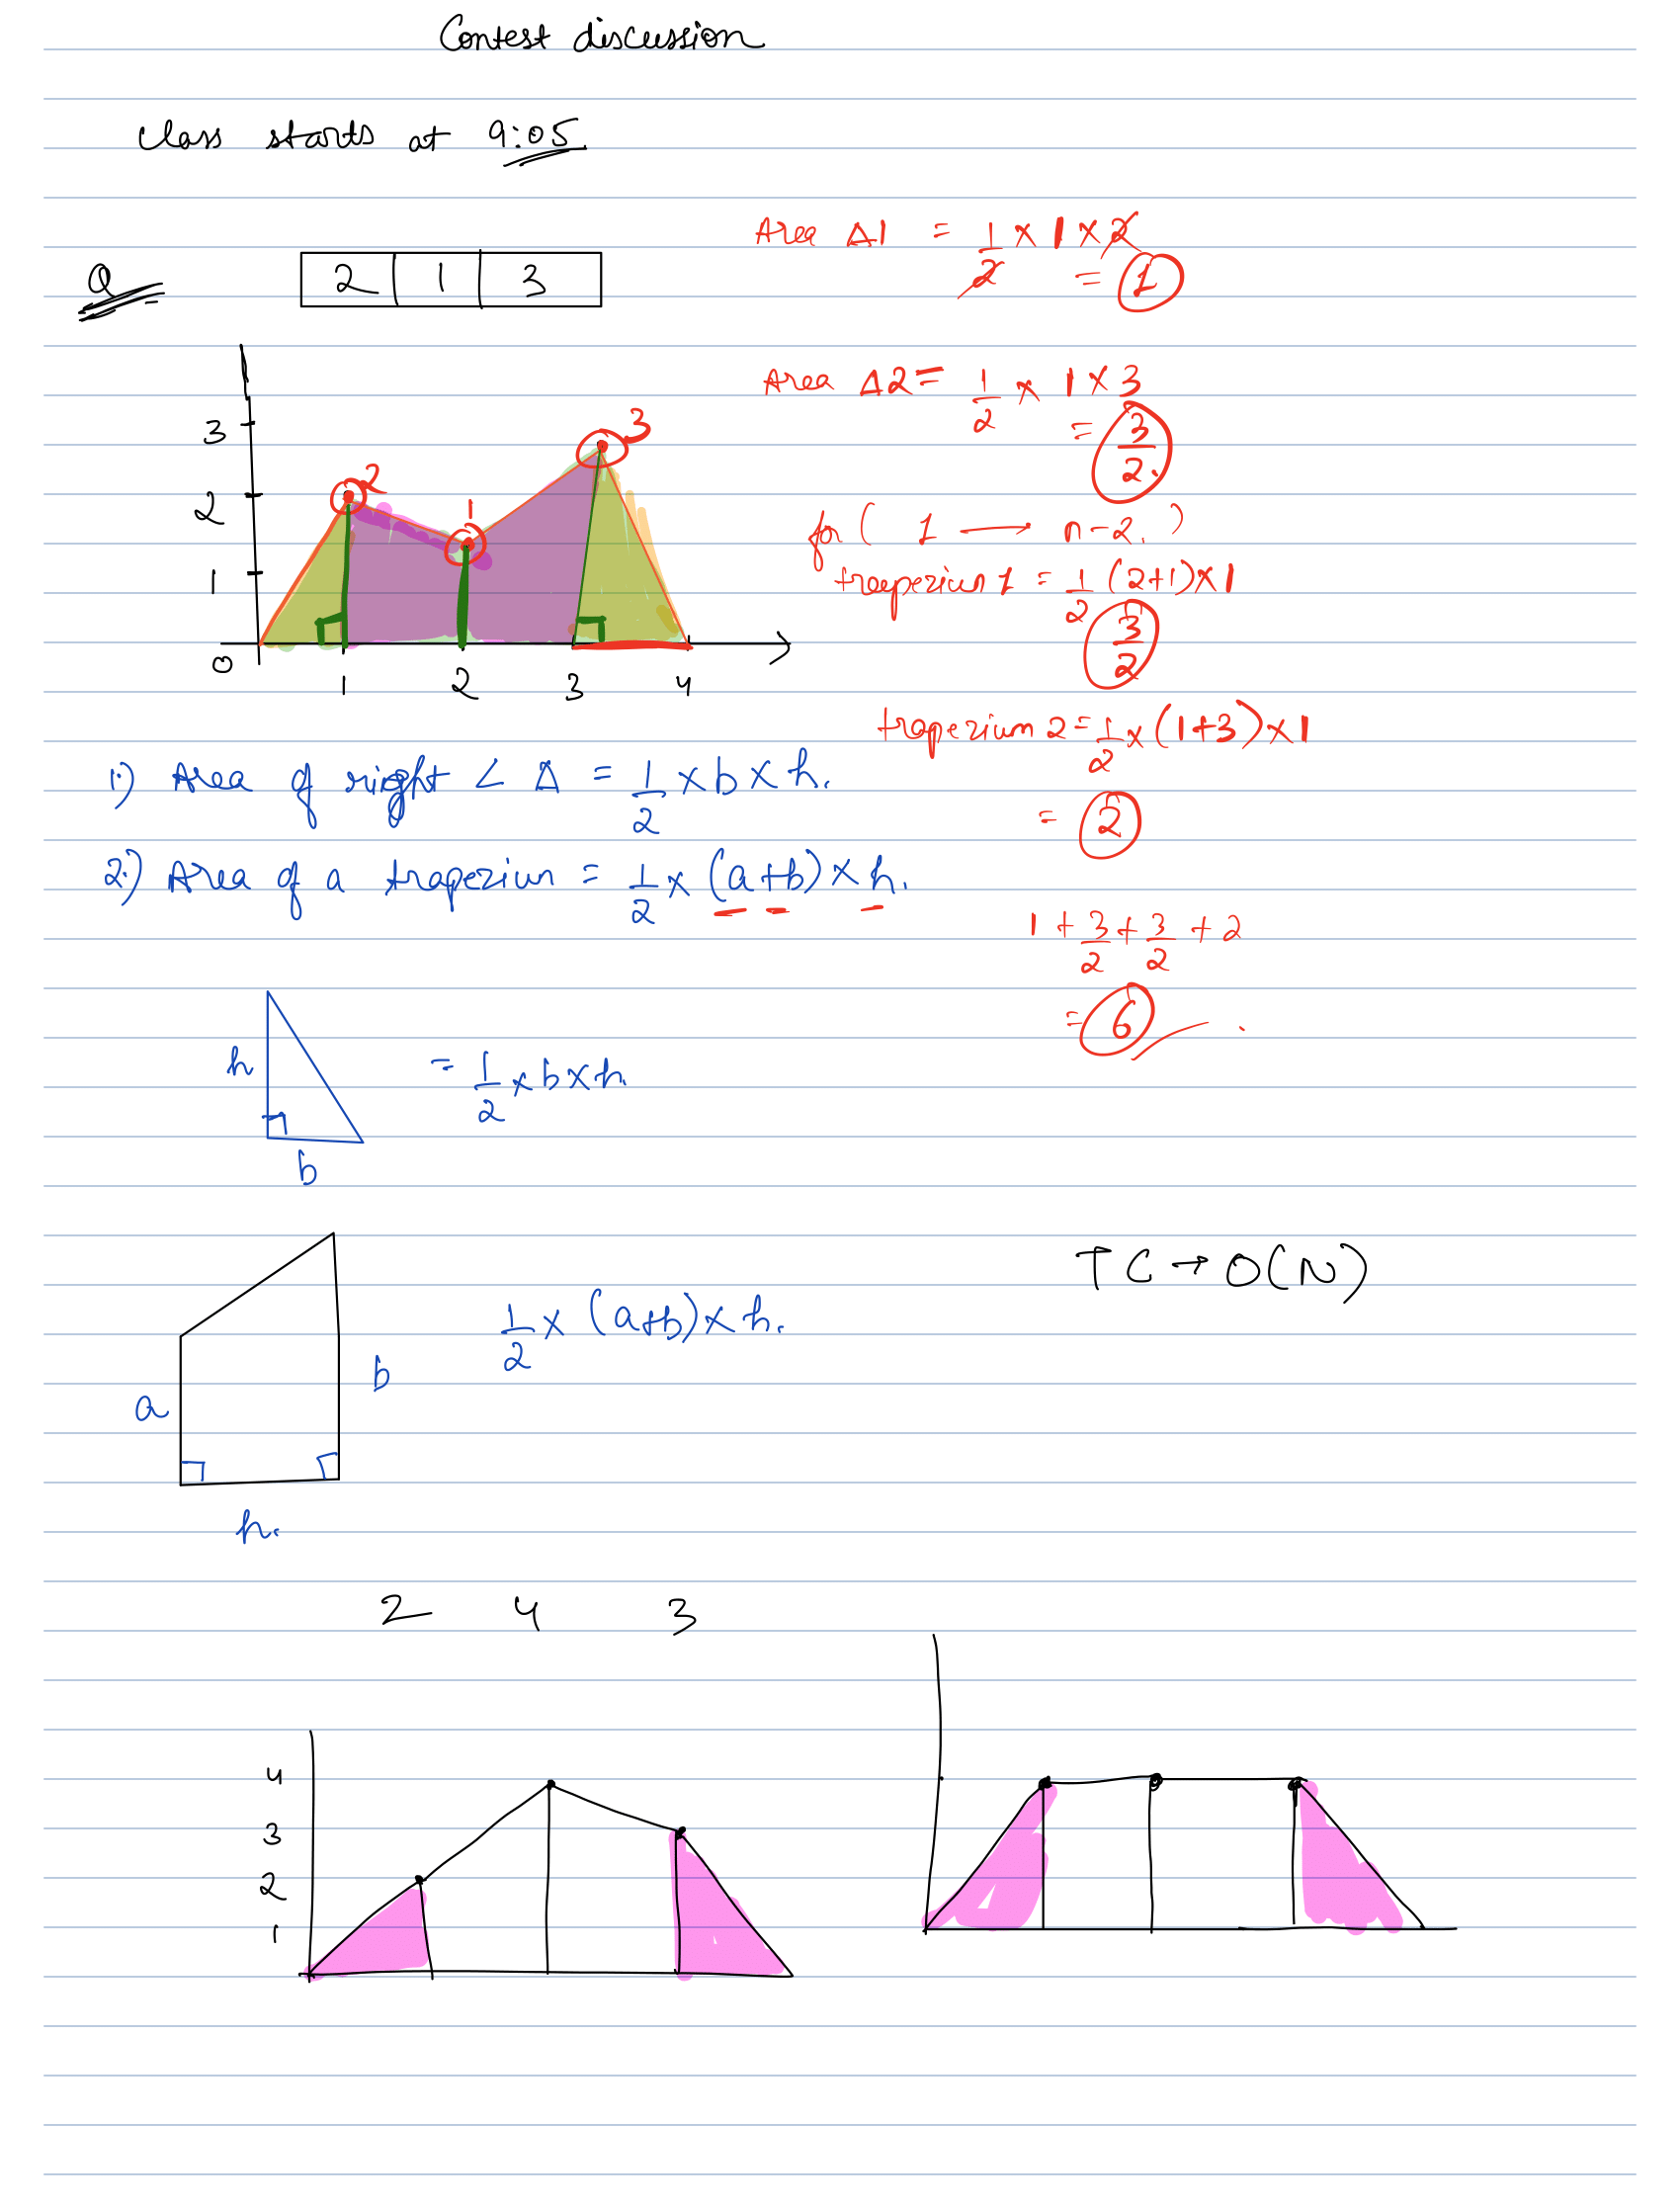 Contest discussion
class starts at 9:05.
Q
2 1 3
Area Δ1 = 1/2 × 1 × 2
= 1
Area Δ2 = 1/2 × 1 × 3
= 3/2.
for ( 1 → n-2. )
trapezium 1 = 1/2 (2+1) × 1
3/2
trapezium 2 = 1/2 × (1+3) × 1
= 2
1 + 3/2 + 3/2 + 2
= 6
3
2
1
2
1
3
0 1 2 3 4
1.) Area of right ∠ Δ = 1/2 × b × h.
2.) Area of a trapezium = 1/2 × (a+b) × h.
h
b
= 1/2 × b × h
TC → O(N)
a
b
h.
1/2 × (a+b) × h.
2 4 3
4
3
2
1